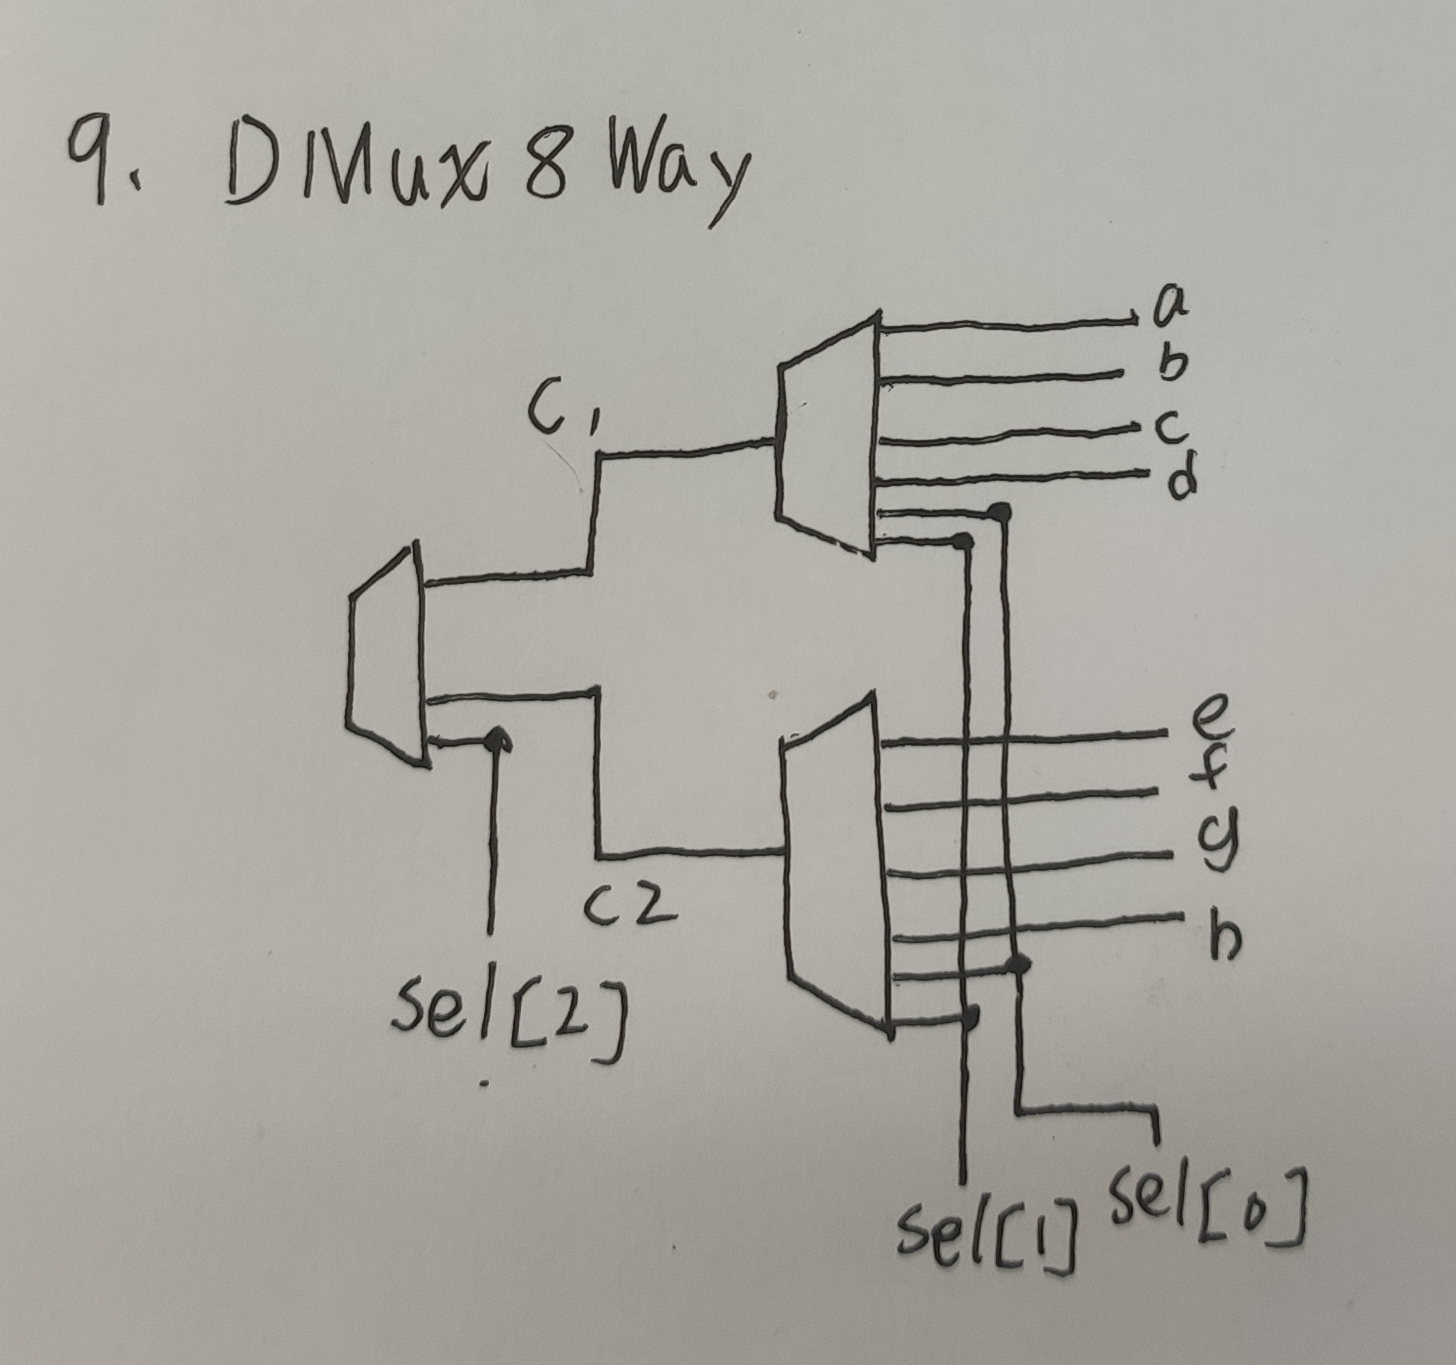 9. DMux 8 Way
a
b
C1
c
d
e
f
g
C2
h
sel[2]
sel[1] sel[0]